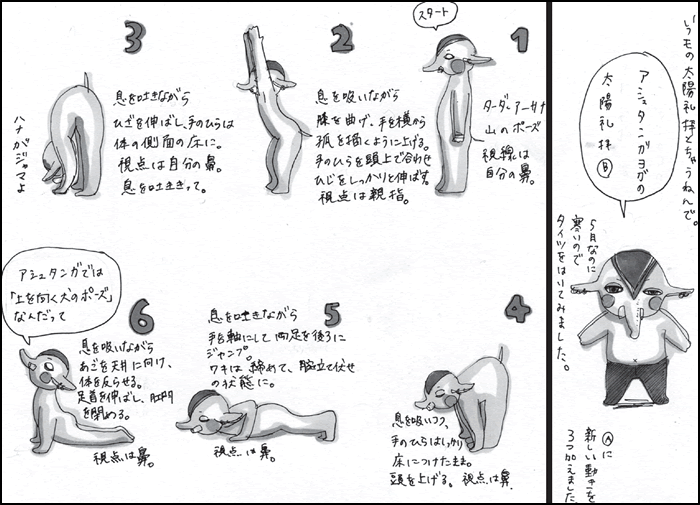 いつもの太陽礼拝とちゃうねんで。
アシュタンガヨガの
太陽礼拝Ⓑ
5月なのに
寒いので
タイツをはいてみました。
Ⓐに
新しい動きを
3つ加えました
1
スタート
ターダアーサナ
山のポーズ
視線は
自分の鼻。
2
息を吸いながら
膝を曲げ、手を横から
弧を描くように上げる。
手のひらを頭上で合わせ
ひじをしっかりと伸ばす。
視点は親指。
3
息を吐きながら
ひざを伸ばし、手のひらは
体の側面の床に。
視点は自分の鼻。
息を吐ききって。
ハナがジャマよ
4
息を吸いつつ、
手のひらはしっかり
床につけたまま。
頭を上げる。視点は鼻。
5
息を吐きながら
手を軸にして両足を後ろに
ジャンプ。
ワキは締めて、腕立て伏せ
の状態に。
視点は鼻。
6
アシュタンガでは
「上を向く犬のポーズ」
なんだって
息を吸いながら
あごを天井に向け、
体を反らせる。
足首を伸ばし、肛門
を閉める。
視点は鼻。